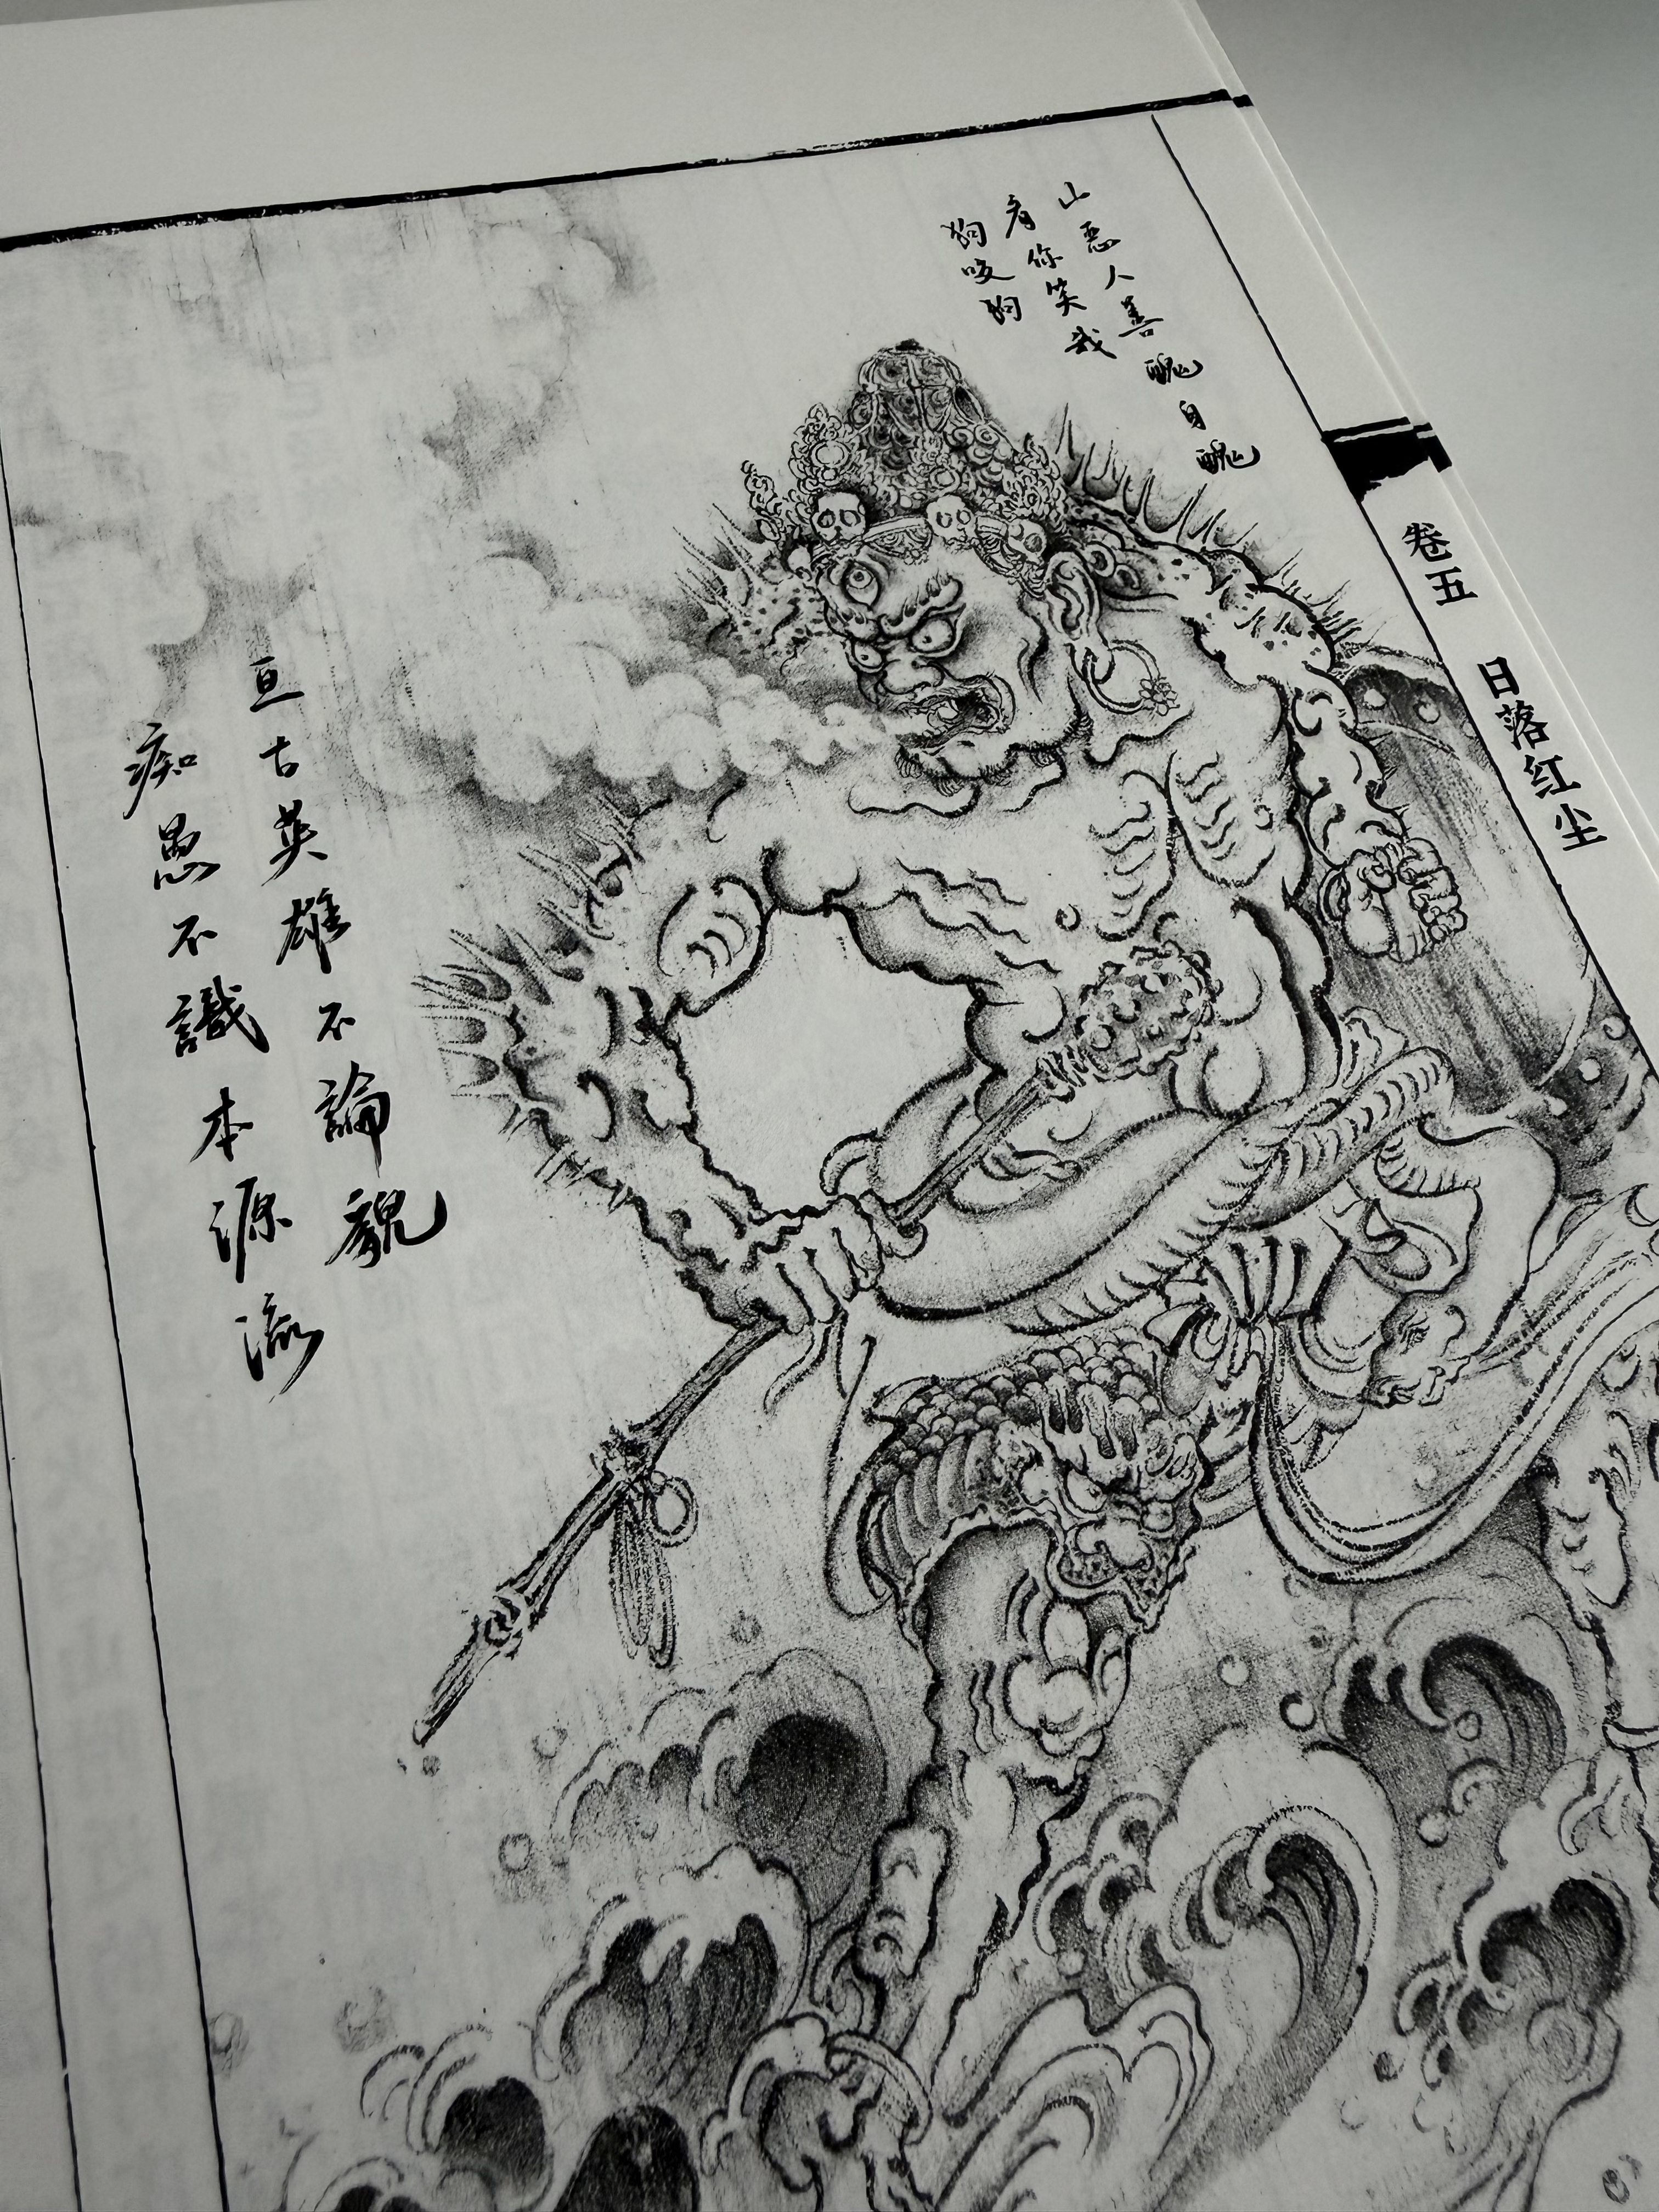 山恶人善醜自醜
看你笑我
狗咬狗
卷五 日落红尘
亘古英雄不論貌
痴愚不識本源流